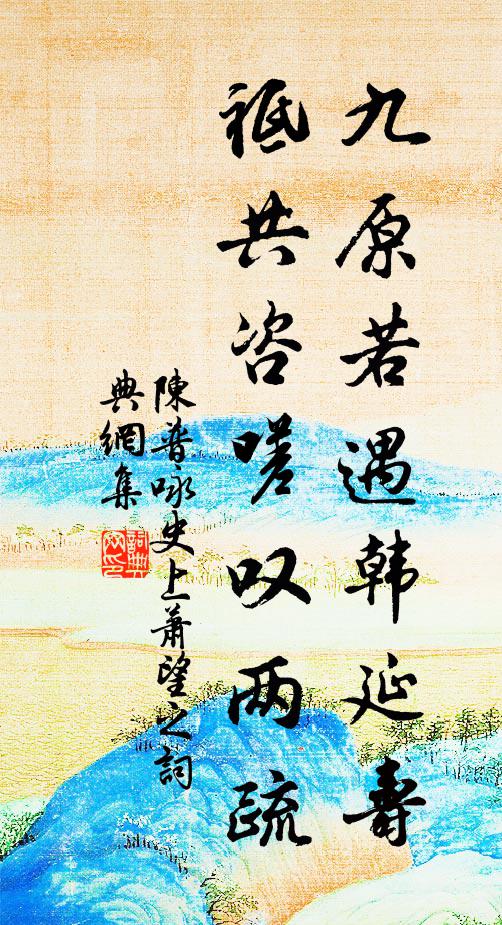 九原若遇韩延寿
祗共咨嗟叹两疏
陳普咏史上蕭望之詞
典網集
詞典網印